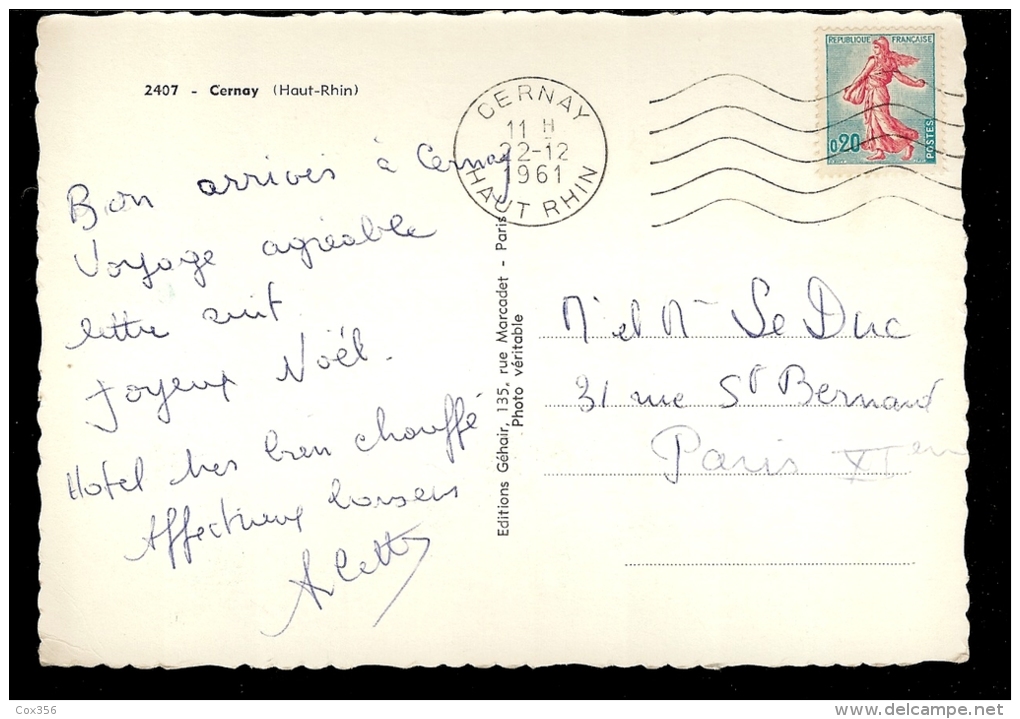 2407 - Cernay (Haut-Rhin)
Bon arrivés à Cernay
Voyage agréable
lettre suit
Joyeux Noël.
Hotel tres bien chauffé
Affectueux baisers
Arlette
Editions Géhair, 135, rue Marcadet - Paris
Photo véritable
CERNAY
11 H
22-12
1961
HAUT RHIN
REPUBLIQUE FRANÇAISE
0,20
POSTES
Mr et Me Le Duc
31 rue St Bernard
Paris XIem
Cox356
www.delcampe.net